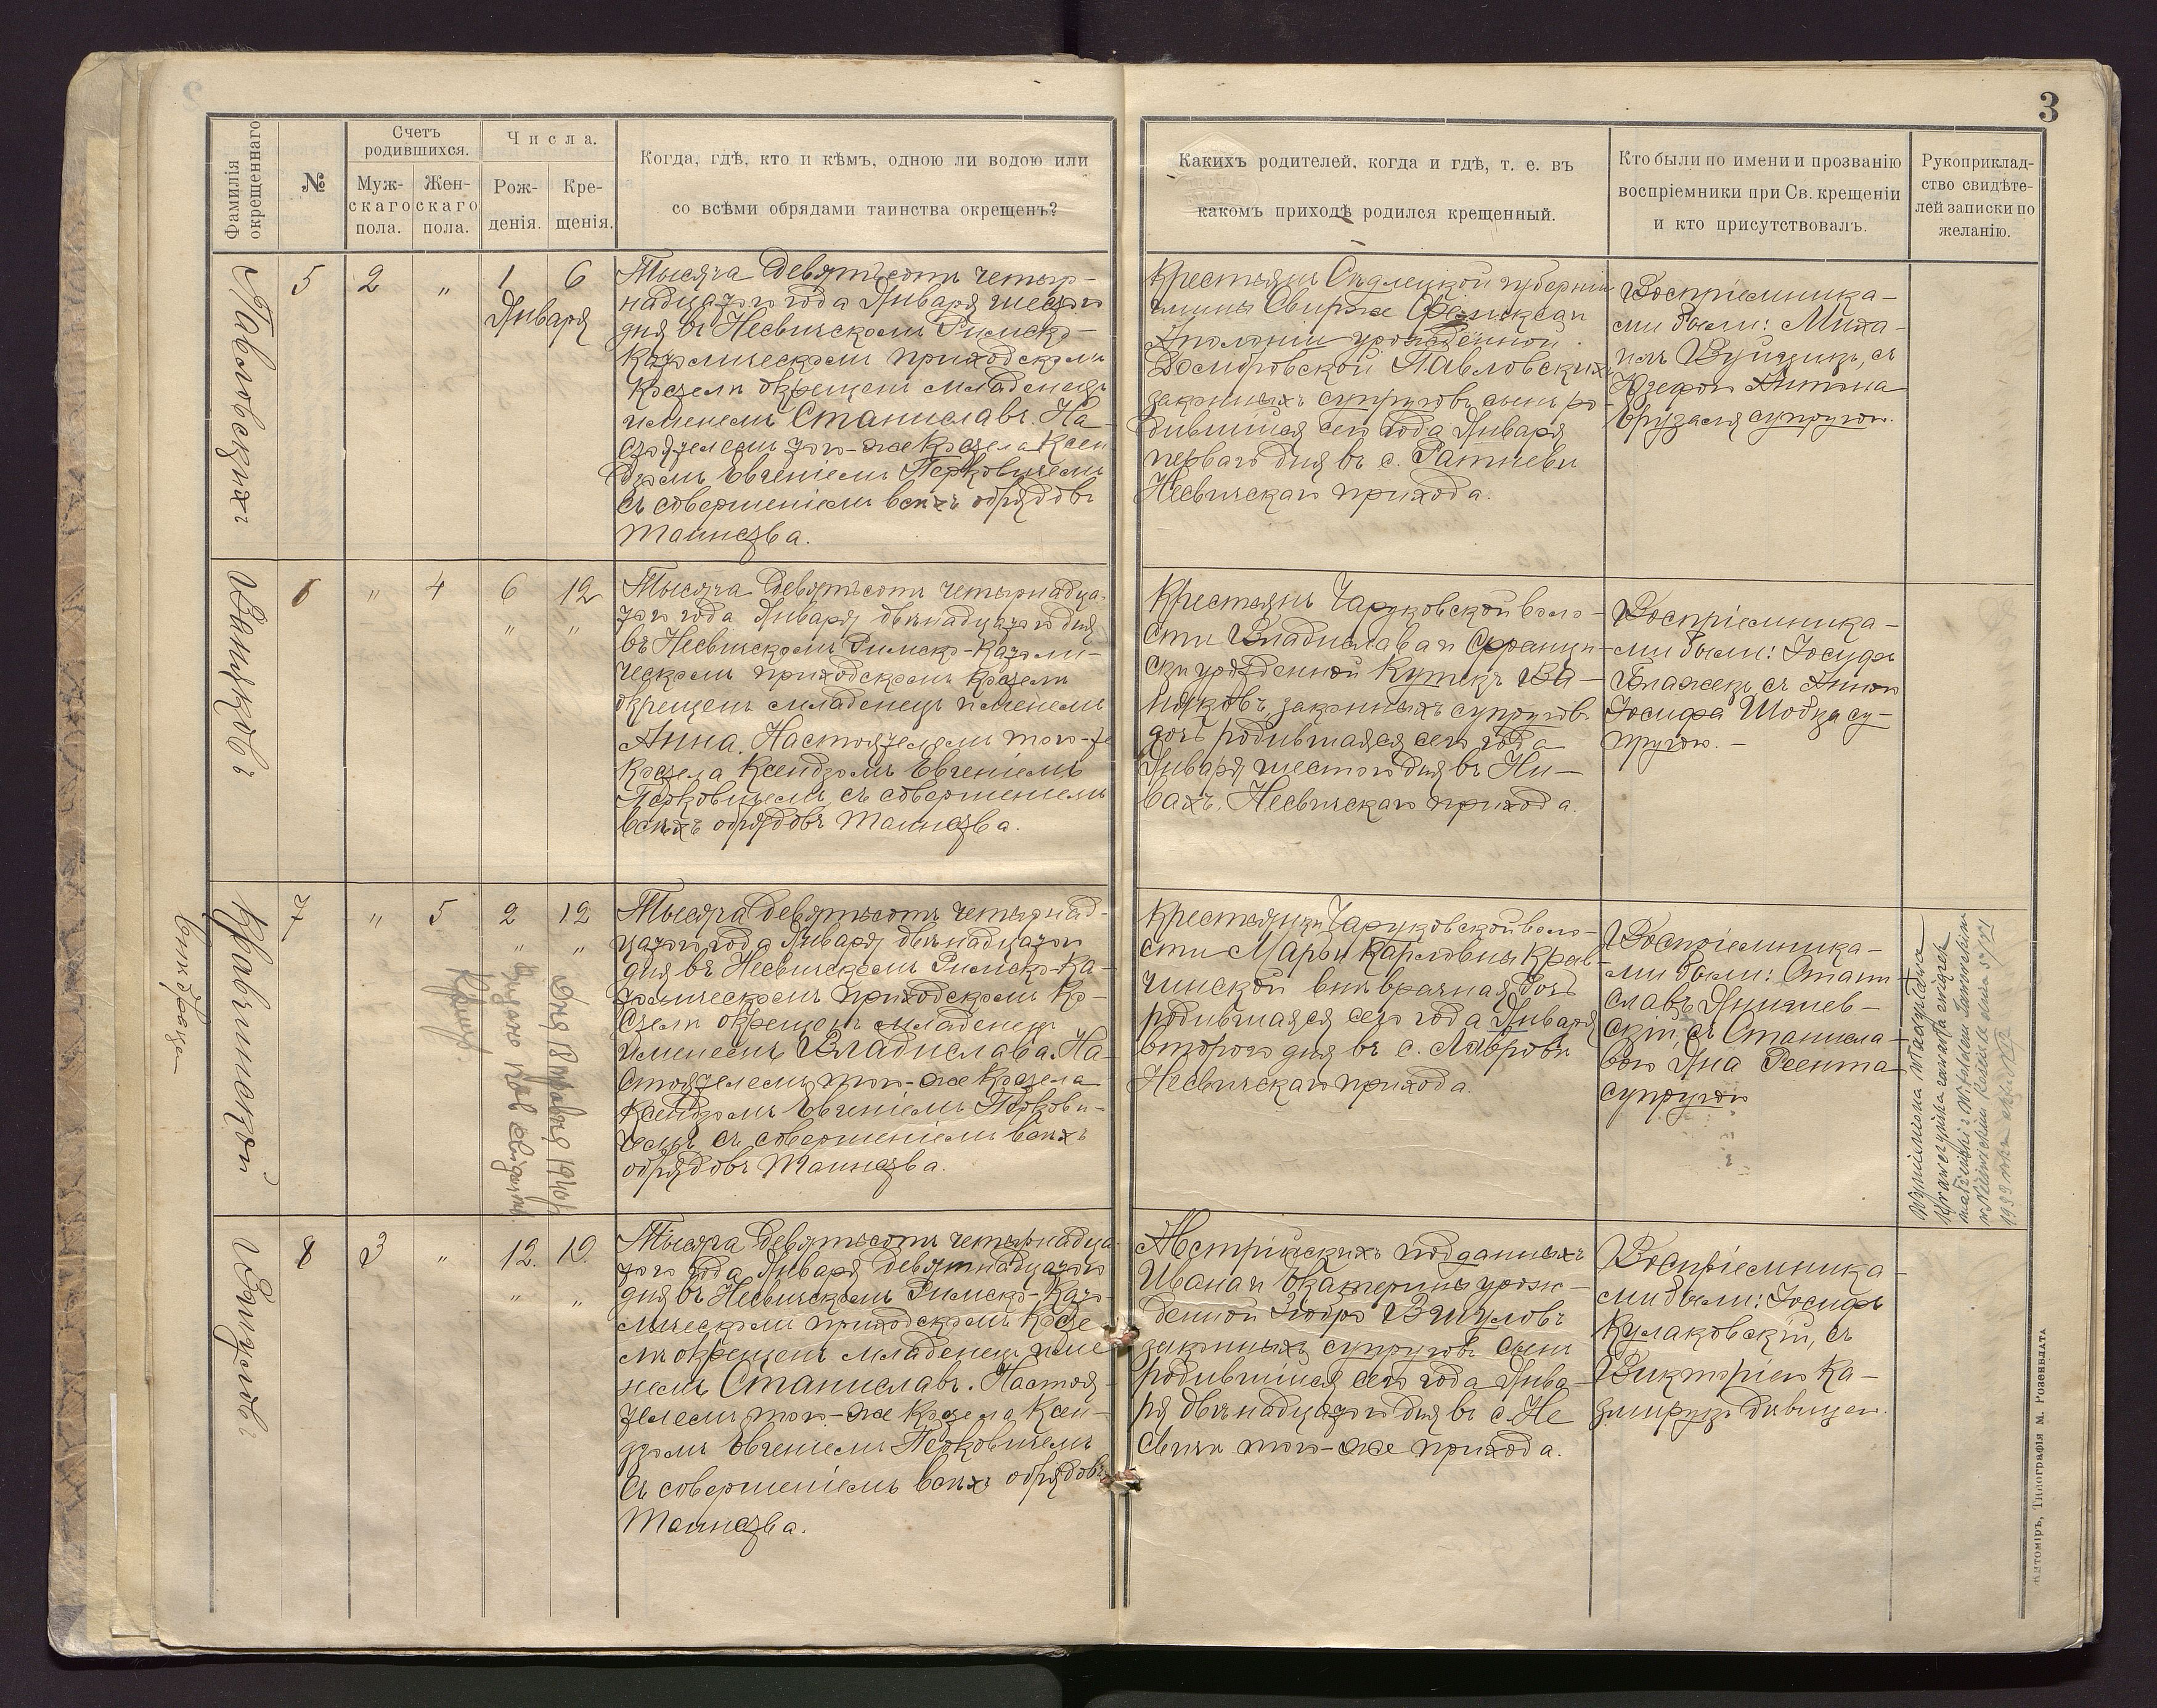 3
Фамилія окрещеннаго
№
Счетъ родившихся.
Мужскаго пола.
Женскаго пола.
Числа.
Рожденія.
Крещенія.
Когда, гдѣ, кто и кѣмъ, одною ли водою или
со всѣми обрядами таинства окрещенъ?
Какихъ родителей, когда и гдѣ, т. е. въ
какомъ приходѣ родился крещенный.
Кто были по имени и прозванію
воспріемники при Св. крещеніи
и кто присутствовалъ.
Рукоприклад-
ство свидѣте-
лей записки по
желанію.
Павловскихъ
5 2 " 1 6
Января
Тысяча девятьсотъ четыр-
надцатого года Января шестого
дня въ Несвичскомъ Римско-
Католическомъ приходскомъ
Костелѣ окрещенъ младенецъ
именемъ Станиславъ. На-
стоятелемъ того-же Костела Ксен
дзомъ Евгеніемъ Перковичемъ
съ совершеніемъ всѣхъ обрядовъ
таинства.
Крестьянъ Сѣдлецкой губерніи
гмины Свирже Феликса и
Аполоніи урожденной
Домбровской Павловскихъ
законныхъ супруговъ сынъ ро-
дившійся сего года Января
перваго дня въ с. Ратневи
Несвичскаго прихода.
Воспріемника-
ми были: Миха-
илъ Вуйцикъ, съ
Юзефою Антона
супругою.
6 " 4 6 12
" "
Тысяча девятьсотъ четырнадца-
того года Января двѣнадцатого дня
въ Несвичскомъ Римско-Католи-
ческомъ приходскомъ Костелѣ
окрещенъ младенецъ именемъ
Анна. Настоятелемъ того-же
Костела Ксендзомъ Евгеніемъ
Перковичемъ съ совершеніемъ
всѣхъ обрядовъ таинства.
Крестьянъ Чаруковской воло-
сти Владислава и Франци-
ски урожденной Кутекъ Ва-
законныхъ супруговъ
дочь родившаяся сего года
Января шестого дня въ Ни-
вахъ, Несвичскаго прихода.
Воспріемника-
ми были: Іосифъ
съ Анною
Іосифа су-
пругою.-
Кравчинской
7 " 5 2 12
" "
Тысяча девятьсотъ четырнад-
цатого года Января двѣнадцатого
дня въ Несвичскомъ Римско-Ка-
толическомъ приходскомъ Ко-
стелѣ окрещенъ младенецъ
именемъ Владислава. На-
стоятелемъ того-же Костела
Ксендзомъ Евгеніемъ Перкови-
чемъ съ совершеніемъ всѣхъ
обрядовъ таинства.
Крестьянки Чаруковской воло-
сти Марьи Карловны Крав-
чинской внѣбрачная дочь
родившаяся сего года Января
второго дня въ с. Лавровѣ
Несвичскаго прихода.
Воспріемника-
ми были: Стани-
славъ
скій, съ Станисла-
вою Яна
супругою
Wymieniona Władysława
Krawczyńska zawarła związek
małżeński z Witoldem Jaworskim
w Nieświczu
8 3 " 12. 19.
" "
Тысяча девятьсотъ четырнадца-
того года Января девятнадцатого
дня въ Несвичскомъ Римско-Като-
лическомъ приходскомъ Косте
лѣ окрещенъ младенецъ име
немъ Станиславъ. Настоя-
телемъ того-же Костела Ксен-
дзомъ Евгеніемъ Перковичемъ
съ совершеніемъ всѣхъ обрядовъ
таинства.
Австрійскихъ подданныхъ
Ивана и Екатерины урож-
денной
законныхъ супруговъ сынъ
родившійся сего года Янва-
ря двѣнадцатого дня въ с. Не
свичи того-же прихода.
Воспріемника-
ми были: Іосифъ
Кулаковскій, съ
Викторіею Ка-
девицею.
Житоміръ, Типографія М. Розенблата